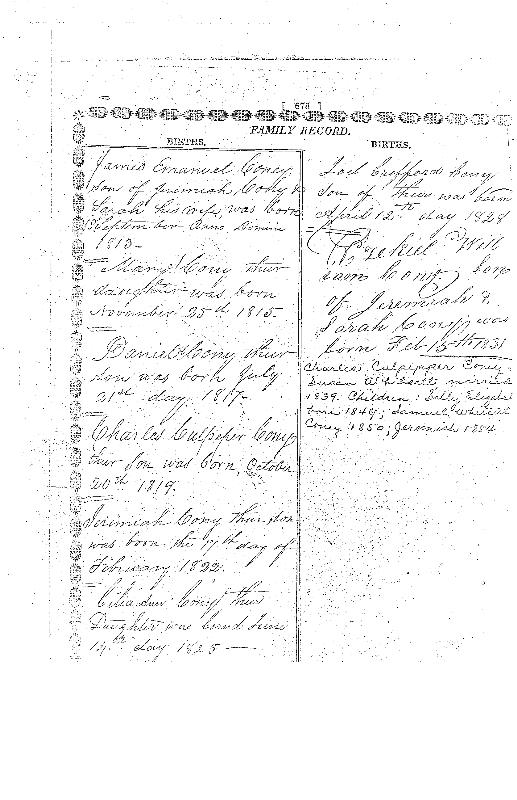 [ 678 ]
FAMILY RECORD.
BIRTHS.
James Emanuel Coney
son of Jeremiah Cony &
Sarah his wife, was born
September Anno Domini
1813-
Mary Cony thur
daughter was born
November 25th 1815.
Daniel Cony thur
son was born July
21st day 1817.
Charles Culpeper Cony
thur son was born, October
20th 1819.
Jeremiah Cony thur son
was born the 17th day of
February 1822.
Cony thur
Daughter was bornd June
14th day 1825 —
BIRTHS.
Joel Safford Cony
son of thur was born
April 12th day 1828
Ezekiel Will
iam Cony son
of Jeremiah &
Sarah Cony was
born Feb 15th 1831
Charles Culpepper Coney -
Susan married
1839. Children: Sally Elizabet
born 1849; Samuel
Coney 1850; Jeremiah 1854